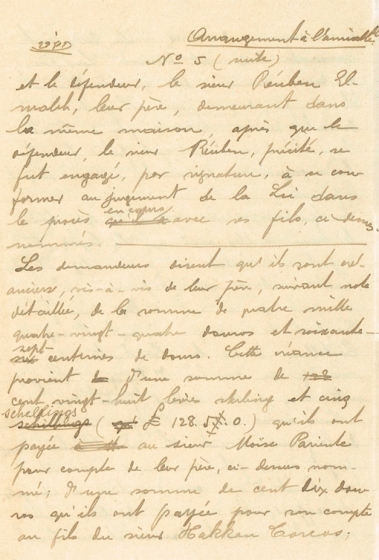 פסק Arrangement à l'amiable
No 5 (suite)
et le défendeur, le sieur Réuben El-
maleh, leur père, demeurant dans
la même maison, après que le
défendeur, le sieur Réuben, précité, se
fut engagé, par signature, à se con-
former au jugement de la Loi dans
le procès en cours avec ses fils, ci-dessus
nommés.
Les demandeurs disent qu'ils sont cré-
anciers, vis-à-vis de leur père, suivant note
détaillée, de la somme de quatre mille
quatre-vingt-quatre douros et soixante-
sept centièmes de douro. Cette créance
provient d'une somme de
cent vingt-huit livres sterling et cinq
schellings (£ 128.5.0.) qu'ils ont
payée au sieur Moïse Pariente
pour compte de leur père, ci-dessus nom-
mé; d'une somme de cent dix dou-
ros qu'ils ont payée pour son compte
au fils du sieur Hakken Corcos;